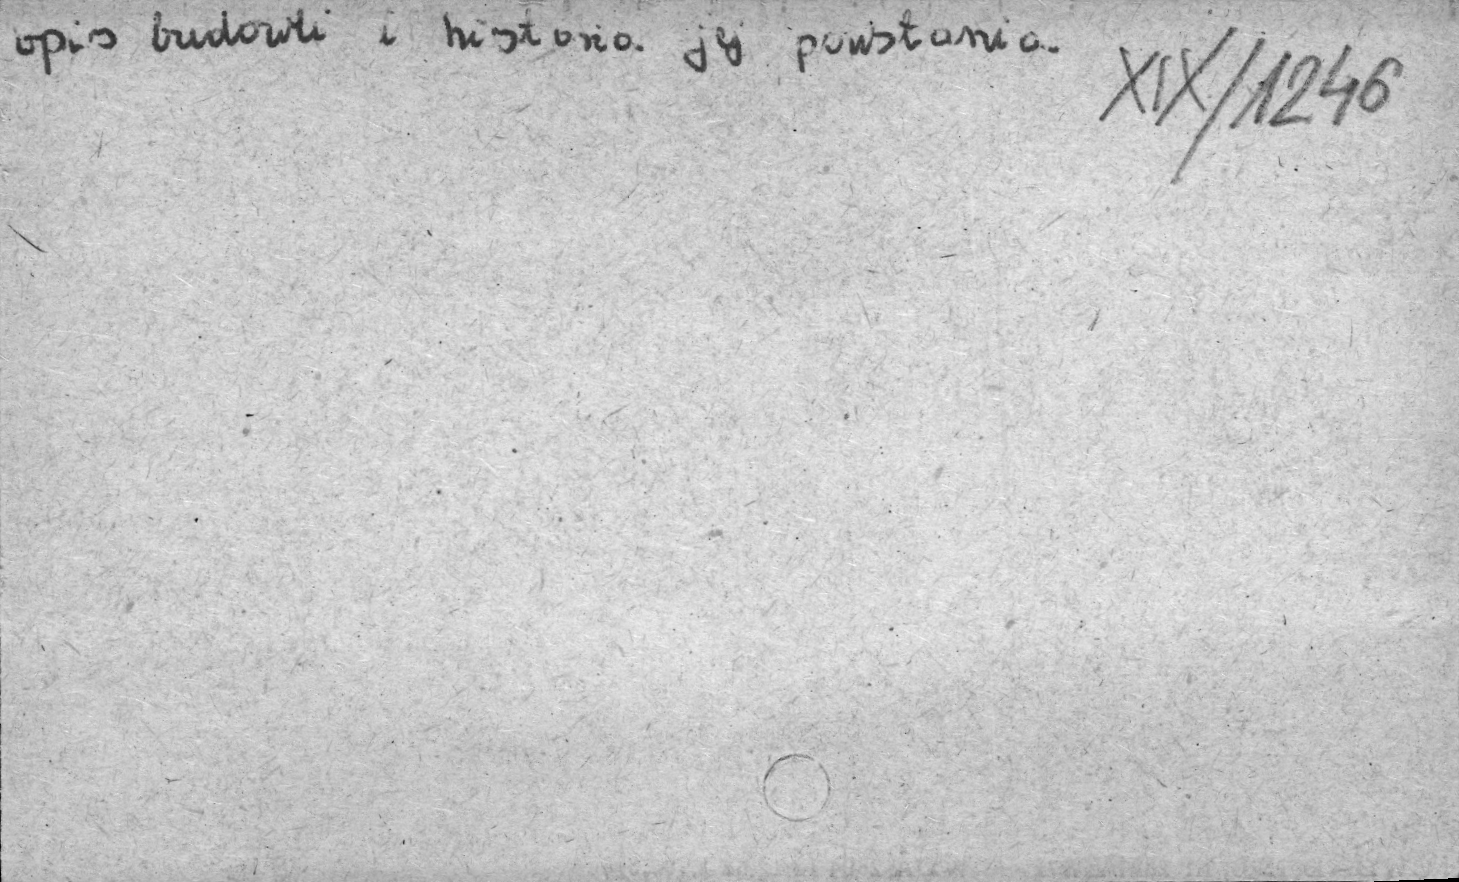 opis budowli i historia jej powstania.
XIX/1246